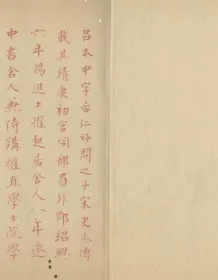 呂本中字居仁好問之子宋史本傳
載其靖康初官祠部員外郎紹興
六年賜進士擢起居舍人八年遷
中書舍人兼侍講權直學士院學